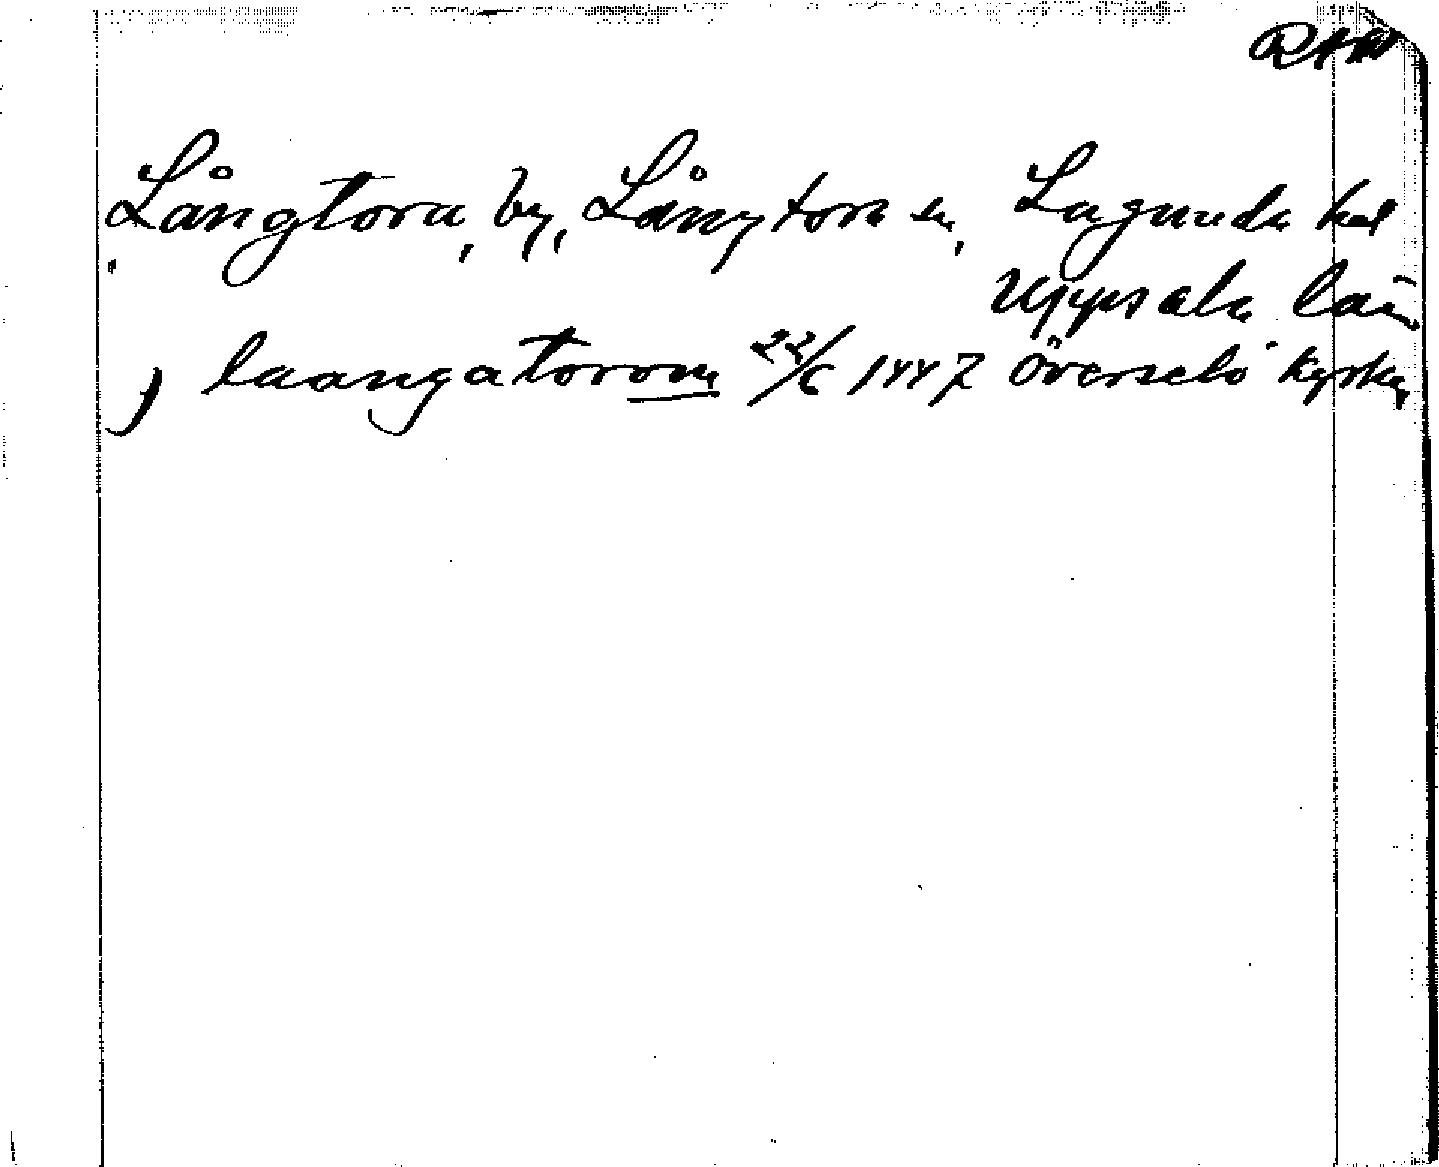 RAW
Långtora, by, Långtora sn, Lagunda hd
Uppsala län
) laangatorom 22/6 1447 Överselö kyrka